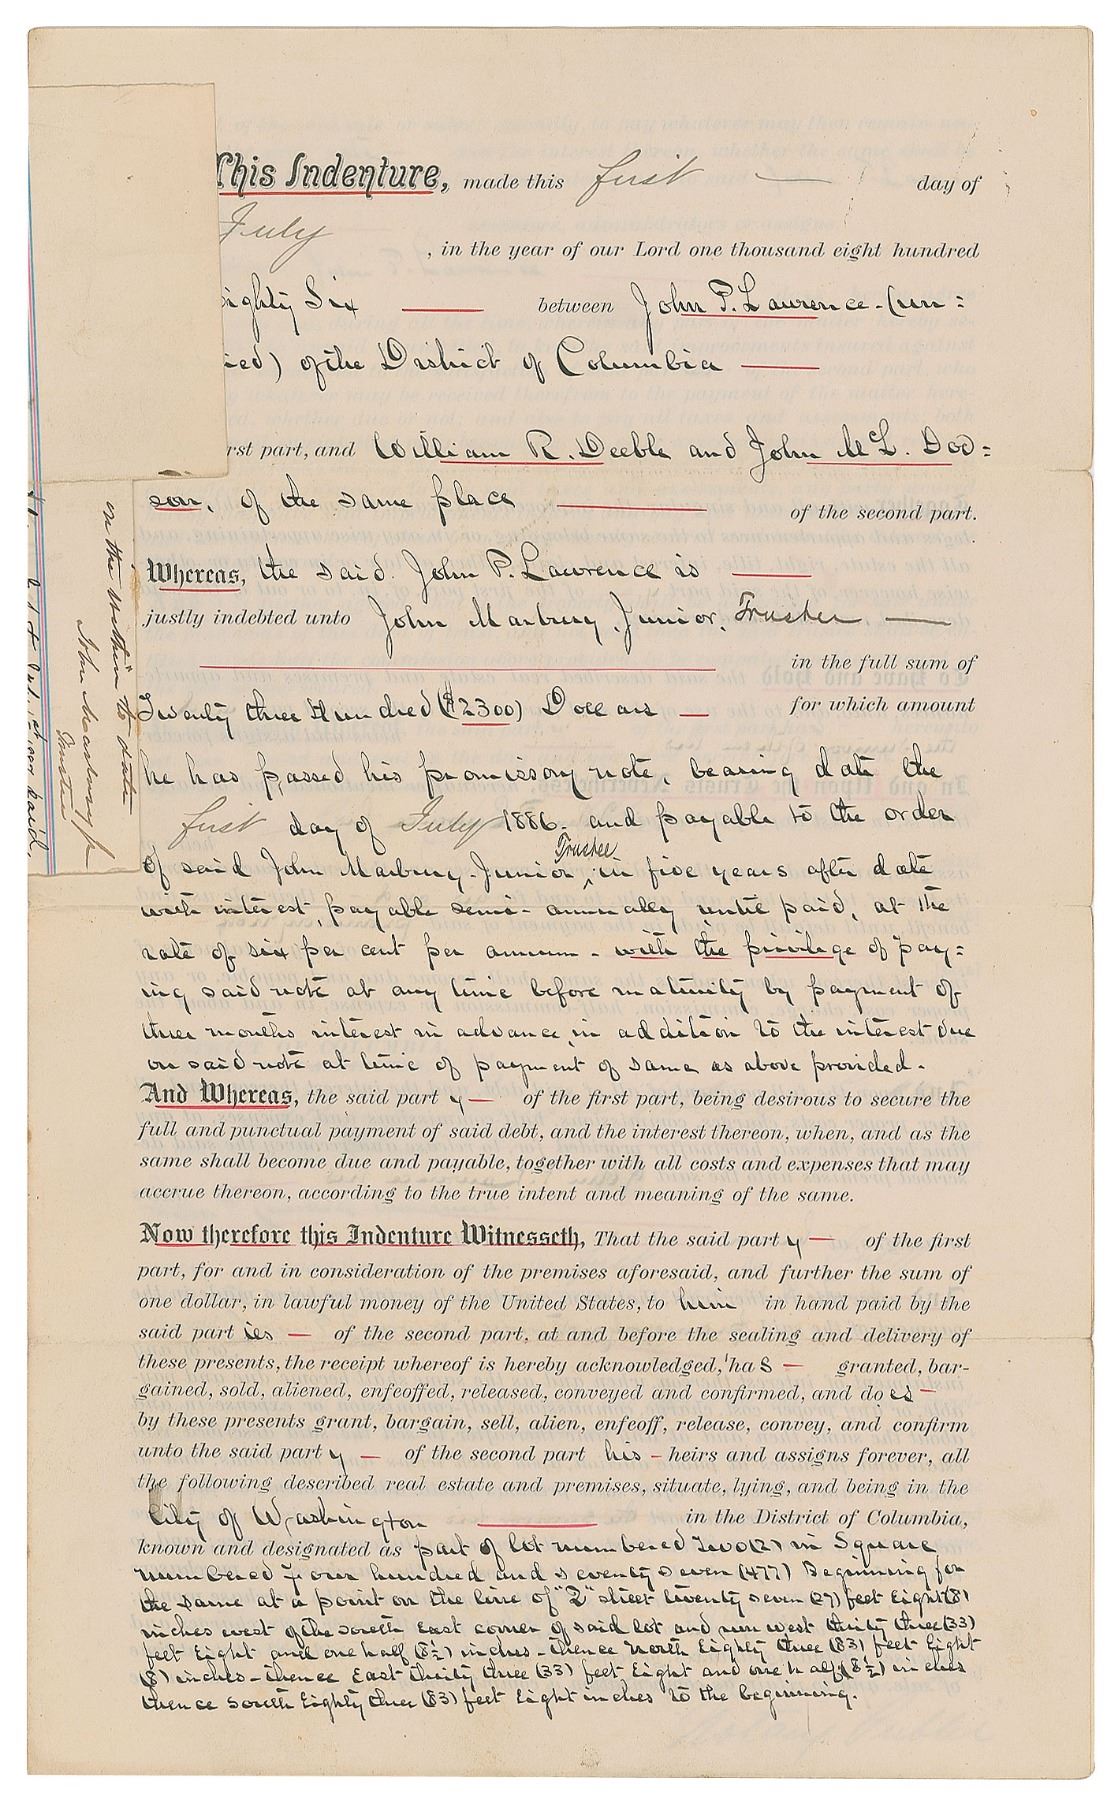 This Indenture, made this first day of
July , in the year of our Lord one thousand eight hundred
eighty Six between John P. Lawrence - (un =
ied) of the District of Columbia
rst part, and William R. Deeble and John McL. Dod =
son, of the same place of the second part.
Whereas, the said John P. Lawrence is
justly indebted unto John Marbury, Junior, Trustee
in the full sum of
Twenty three Hundred ($2300) Dollars for which amount
he has passed his promissory note, bearing date the
first day of July 1886. and payable to the order
Trustee
of said John Marbury - Junior ^ in five years after date
with interest, payable semi-annually until paid, at the
rate of six per cent per annum - with the privilege of pay =
ing said note at any time before maturity by payment of
three months interest in advance, in addition to the interest due
on said note at time of payment of same as above provided.
And Whereas, the said part y of the first part, being desirous to secure the
full and punctual payment of said debt, and the interest thereon, when, and as the
same shall become due and payable, together with all costs and expenses that may
accrue thereon, according to the true intent and meaning of the same.
Now therefore this Indenture Witnesseth, That the said part y of the first
part, for and in consideration of the premises aforesaid, and further the sum of
one dollar, in lawful money of the United States, to him in hand paid by the
said part ies of the second part, at and before the sealing and delivery of
these presents, the receipt whereof is hereby acknowledged, ha s granted, bar-
gained, sold, aliened, enfeoffed, released, conveyed and confirmed, and do es
by these presents grant, bargain, sell, alien, enfeoff, release, convey, and confirm
unto the said part y of the second part his heirs and assigns forever, all
the following described real estate and premises, situate, lying, and being in the
City of Washington in the District of Columbia,
known and designated as part of lot numbered Two (2) in Square
numbered Four hundred and seventy seven (477) Beginning for
the same at a point on the line of "Q" street twenty seven (27) feet Eight (8)
inches west of the south East corner of said lot and run west thirty three (33)
feet Eight and one half (8½) inches - thence North Eighty three (83) feet Eight
(8) inches - thence East thirty three (33) feet Eight and one half (8½) inches
thence South Eighty three (83) feet Eight inches to the beginning.
on the within to date
John Marbury Jr
Trustee